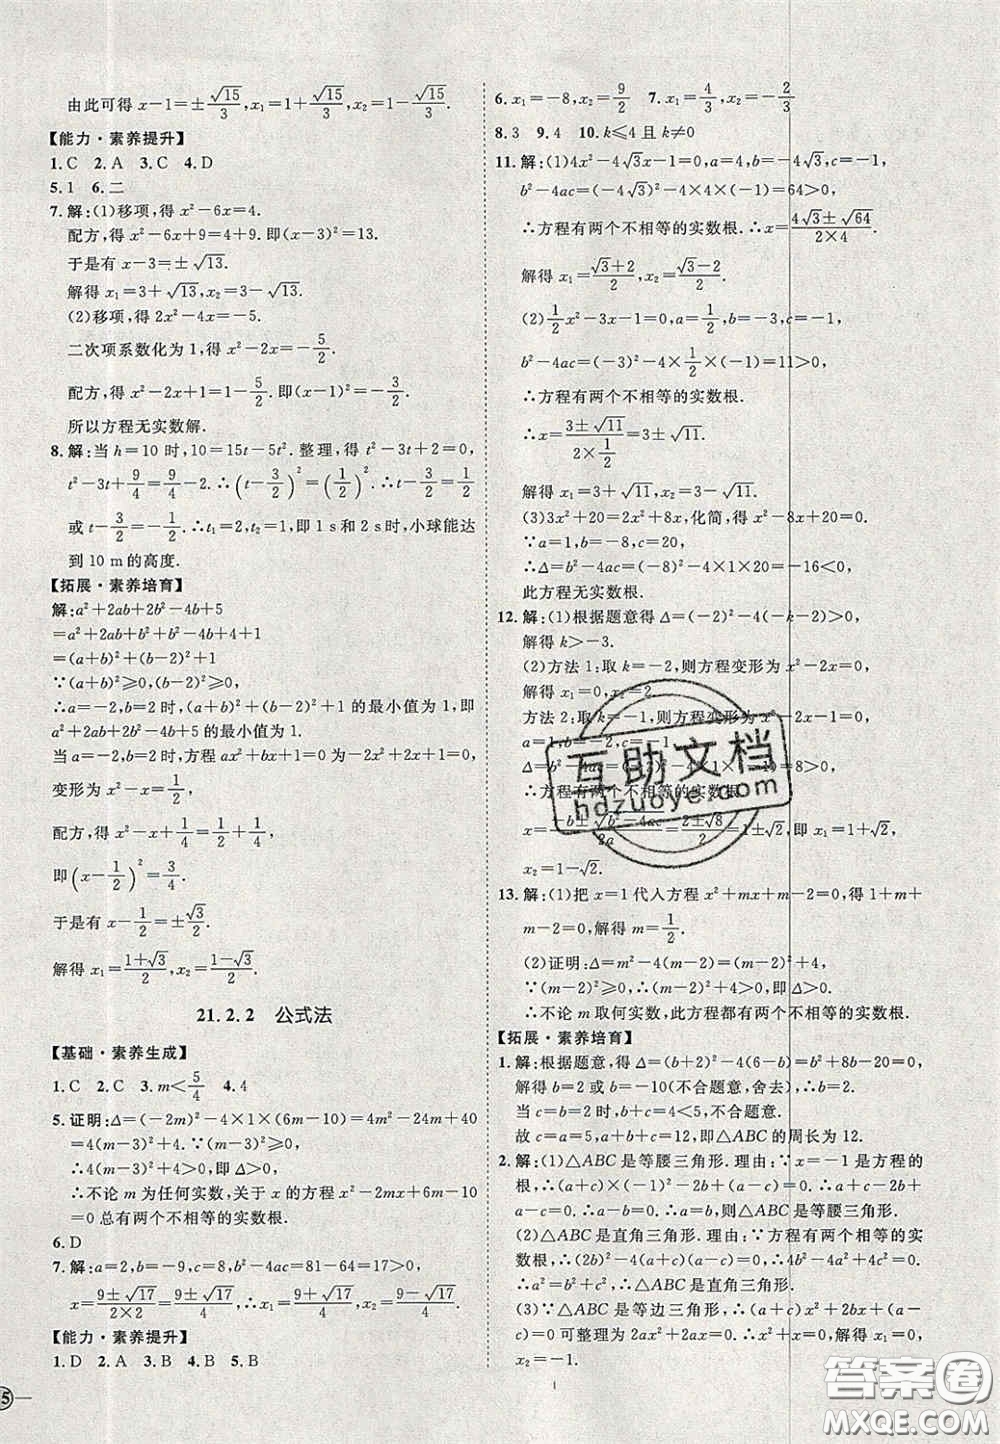 由此可得 x－1=±√15/3, x₁=1+√15/3, x₂=1－√15/3.
【能力·素养提升】
1.C 2.A 3.C 4.D
5.1 6.二
7.解:(1)移项,得 x²－6x=4.
配方,得 x²－6x+9=4+9.即(x－3)²=13.
于是有 x－3=±√13.
解得 x₁=3+√13, x₂=3－√13.
(2)移项,得 2x²－4x=－5.
二次项系数化为 1,得 x²－2x=－5/2.
配方,得 x²－2x+1=1－5/2.即(x－1)²=－3/2.
所以方程无实数解.
8.解:当 h=10 时,10=15t－5t².整理,得 t²－3t+2=0,
t²－3t+9/4=9/4－2.∴(t－3/2)²=(1/2)².∴t－3/2=1/2
或 t－3/2=－1/2.∴t₁=2,t₂=1,即 1 s 和 2 s时,小球能达
到 10 m 的高度.
【拓展·素养培育】
解:a²+2ab+2b²－4b+5
=a²+2ab+b²+b²－4b+4+1
=(a+b)²+(b－2)²+1.
∵(a+b)²≥0,(b－2)²≥0,
∴a=－2,b=2时,(a+b)²+(b－2)²+1的最小值为1,即
a²+2ab+2b²－4b+5的最小值为1.
当 a=－2,b=2时,方程 ax²+bx+1=0为－2x²+2x+1=0,
变形为 x²－x=1/2,
配方,得 x²－x+1/4=1/2+1/4,
即(x－1/2)²=3/4.
于是有 x－1/2=±√3/2.
解得 x₁=(1+√3)/2, x₂=(1－√3)/2.
21.2.2 公式法
【基础·素养生成】
1.C 2.C 3.m<5/4 4.4
5.证明:Δ=(－2m)²－4×1×(6m－10)=4m²－24m+40
=4(m－3)²+4.∵(m－3)²≥0,
∴4(m－3)²+4>0,即Δ>0,
∴不论 m 为任何实数,关于 x 的方程 x²－2mx+6m－10
=0总有两个不相等的实数根.
6.D
7.解:a=2,b=－9,c=8,b²－4ac=81－64=17>0,
x=(9±√17)/(2×2)=(9±√17)/4.∴x₁=(9+√17)/4, x₂=(9－√17)/4.
【能力·素养提升】
1.D 2.A 3.B 4.B 5.B
6.x₁=－8,x₂=9/2 7.x₁=4/3,x₂=－2/3
8.3 9.4 10.k≤4 且 k≠0
11.解:(1)4x²－4√3x－1=0,a=4,b=－4√3,c=－1,
b²－4ac=(－4√3)²－4×4×(－1)=64>0,
∴方程有两个不相等的实数根.∴x=(4√3±√64)/(2×4).
解得 x₁=(√3+2)/2, x₂=(√3－2)/2.
(2)1/2x²－3x－1=0,a=1/2,b=－3,c=－1,
b²－4ac=(－3)²－4×1/2×(－1)=11>0,
∴方程有两个不相等的实数根.
∴x=(3±√11)/(2×1/2)=3±√11,
解得 x₁=3+√11, x₂=3－√11.
(3)3x²+20=2x²+8x,化简,得 x²－8x+20=0.
∵a=1,b=－8,c=20,
∴Δ=b²－4ac=(－8)²－4×1×20=－16<0,
此方程无实数根.
12.解:(1)根据题意得 Δ=(－2)²－4(－k－2)>0,
解得 k>－3.
(2)方法 1:取 k=－2,则方程变形为 x²－2x=0,
解得 x₁=0,x₂=2.
方法 2:取 k=－1,则方程变形为 x²－2x－1=0,
a=1,b=－2,c=－1,
∴方程有两个不相等的实数根.
x=(－b±√(b²－4ac))/2a=(2±√8)/2=1±√2,即 x₁=1+√2,
x₂=1－√2.
13.解:(1)把 x=1代人方程 x²+mx+m－2=0,得 1+m+
m－2=0,解得 m=1/2.
(2)证明:Δ=m²－4(m－2)=(m－2)²+4.
∵(m－2)²≥0,∴(m－2)²+4>0,即Δ>0.
∴不论 m取何实数,此方程都有两个不相等的实数根.
【拓展·素养培育】
1.解:根据题意,得 Δ=(b+2)²－4(6－b)=b²+8b－20=0,
解得 b=2 或 b=－10(不合题意,舍去),
当 c=b=2时,b+c=4<5,不合题意.
故 c=a=5,∴a+b+c=12,即△ABC的周长为 12.
2.解:(1)△ABC 是等腰三角形.理由:∵x=－1 是方程的
a－c=0.∴a=c,则△ABC是等腰三角形.
(2)△ABC是直角三角形.理由:∵方程有两个相等的实
数根,∴(2b)²－4(a+c)(a－c)=0,∴4b²－4a²+4c²=0,
∴a²=b²+c²,∴△ABC是直角三角形.
(3)∵△ABC是等边三角形,∴(a+c)x²+2bx+(a－c)
=0可整理为 2ax²+2ax=0,∴x²+x=0.解得 x₁=0,
x₂=－1.
互助文档
hdzuoye.com
答案圈
MXQE.COM